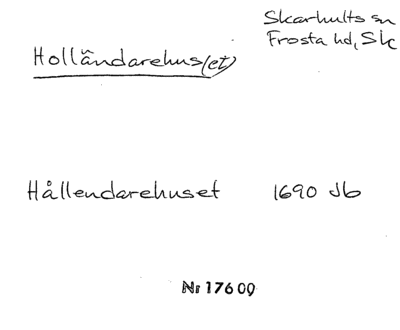 Skarhults sn
Frosta hd, Sk
Holländarehus(et)
Hållendarehuset 1690 Jb
Nr 17609